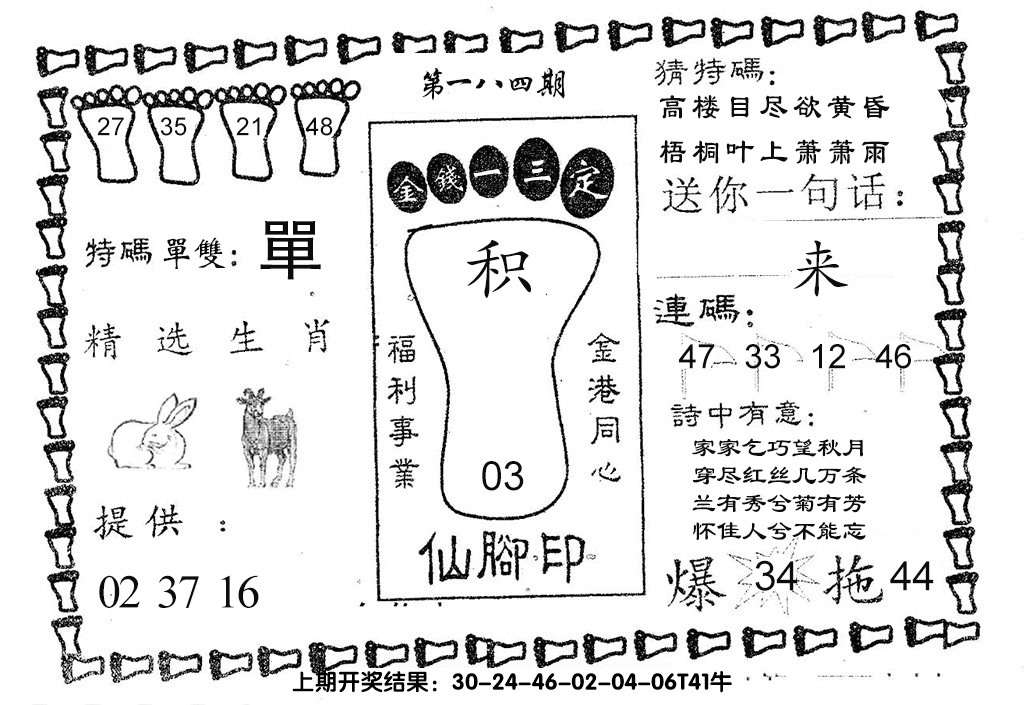 第一八四期
27 35 21 48
特碼單雙：單
精选生肖
提供：
02 37 16
金錢一三定
积
福利事業
金港同心
03
仙腳印
猜特碼：
高楼目尽欲黄昏
梧桐叶上萧萧雨
送你一句话：
来
連碼：
47 33 12 46
詩中有意：
家家乞巧望秋月
穿尽红丝几万条
兰有秀兮菊有芳
怀佳人兮不能忘
爆 34 拖 44
上期开奖结果：30-24-46-02-04-06T41牛